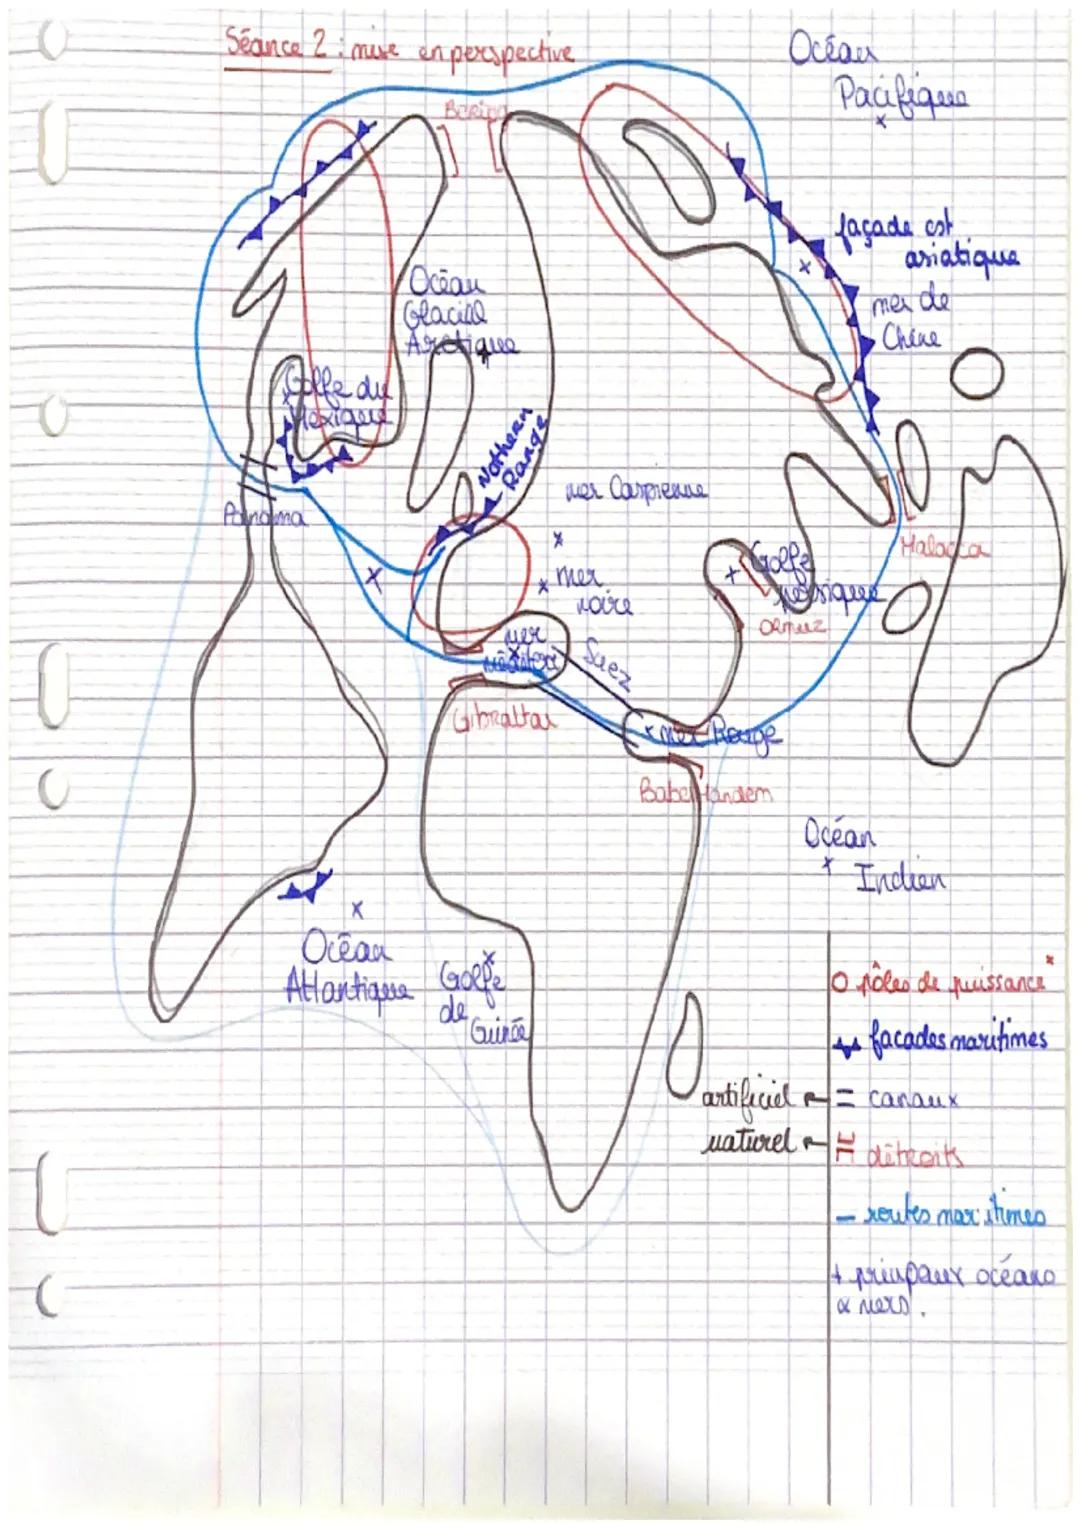 Séance 2 : mise en perspective
Océan
Pacifique
Bering
façade est
asiatique
mer de
Chine
Océan
Glacial
Arctique
Golfe du
Mexique
Nothern
Range
mer Caspienne
Panama
Malacca
Golfe
persique
mer
noire
ormuz
mer
Suez
Gibraltar
mer Rouge
Babel Mandem
Océan
Indien
Océan
Atlantique
Golfe
de
Guinée
O pôles de puissance*
facades maritimes
artificiel = canaux
naturel détroits
– routes maritimes
+ prinpaux océans
& mers.